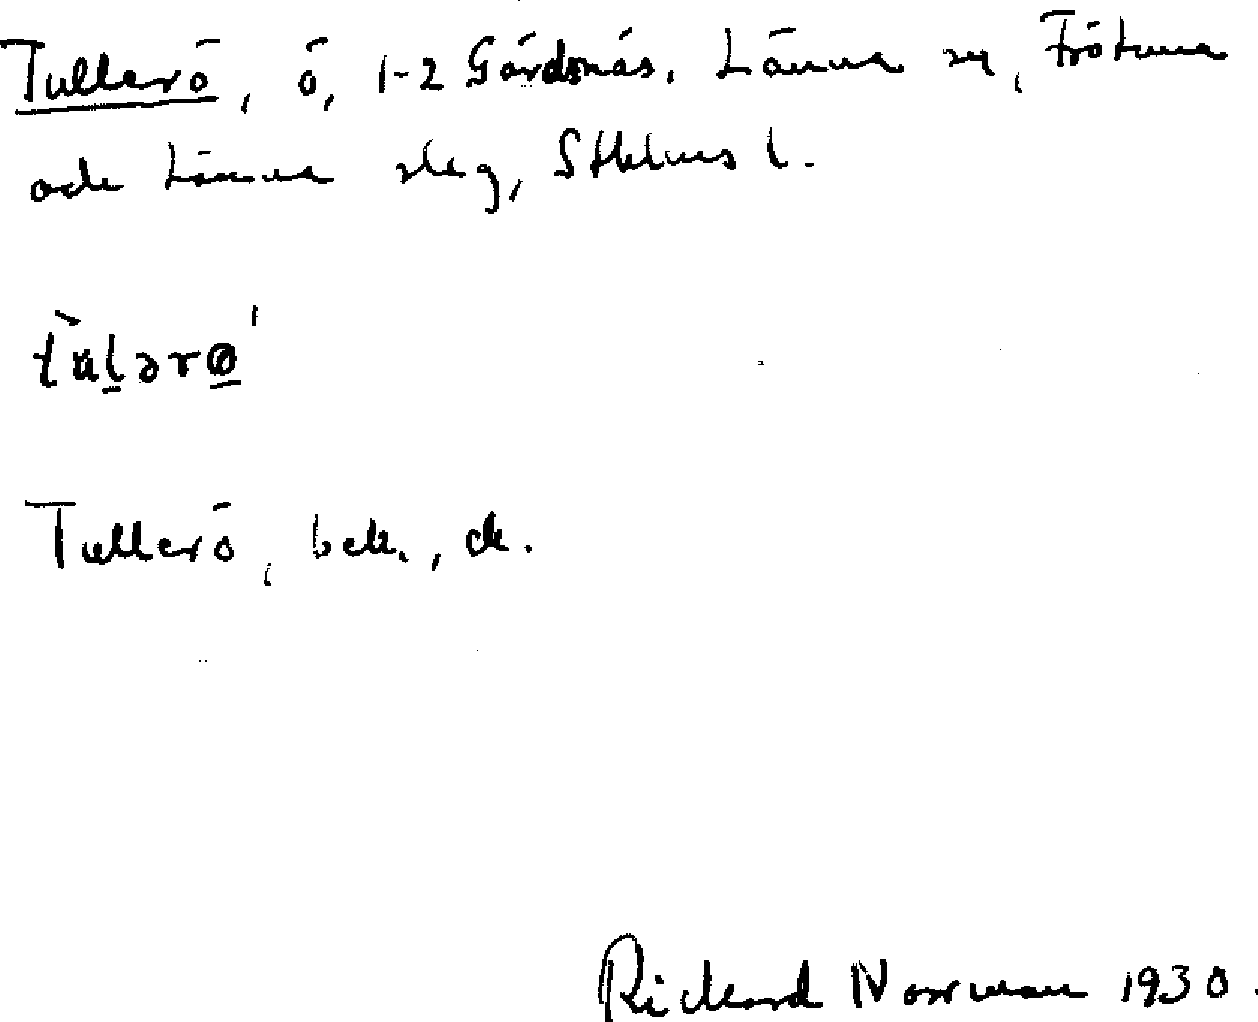 Tullerö, ö, 1-2 Gärdsnäs, Länna sn, Frötuna
och Länna skg, Sthlms l.
Tullerö, bek., ek.
Rickard Norrman 1930.